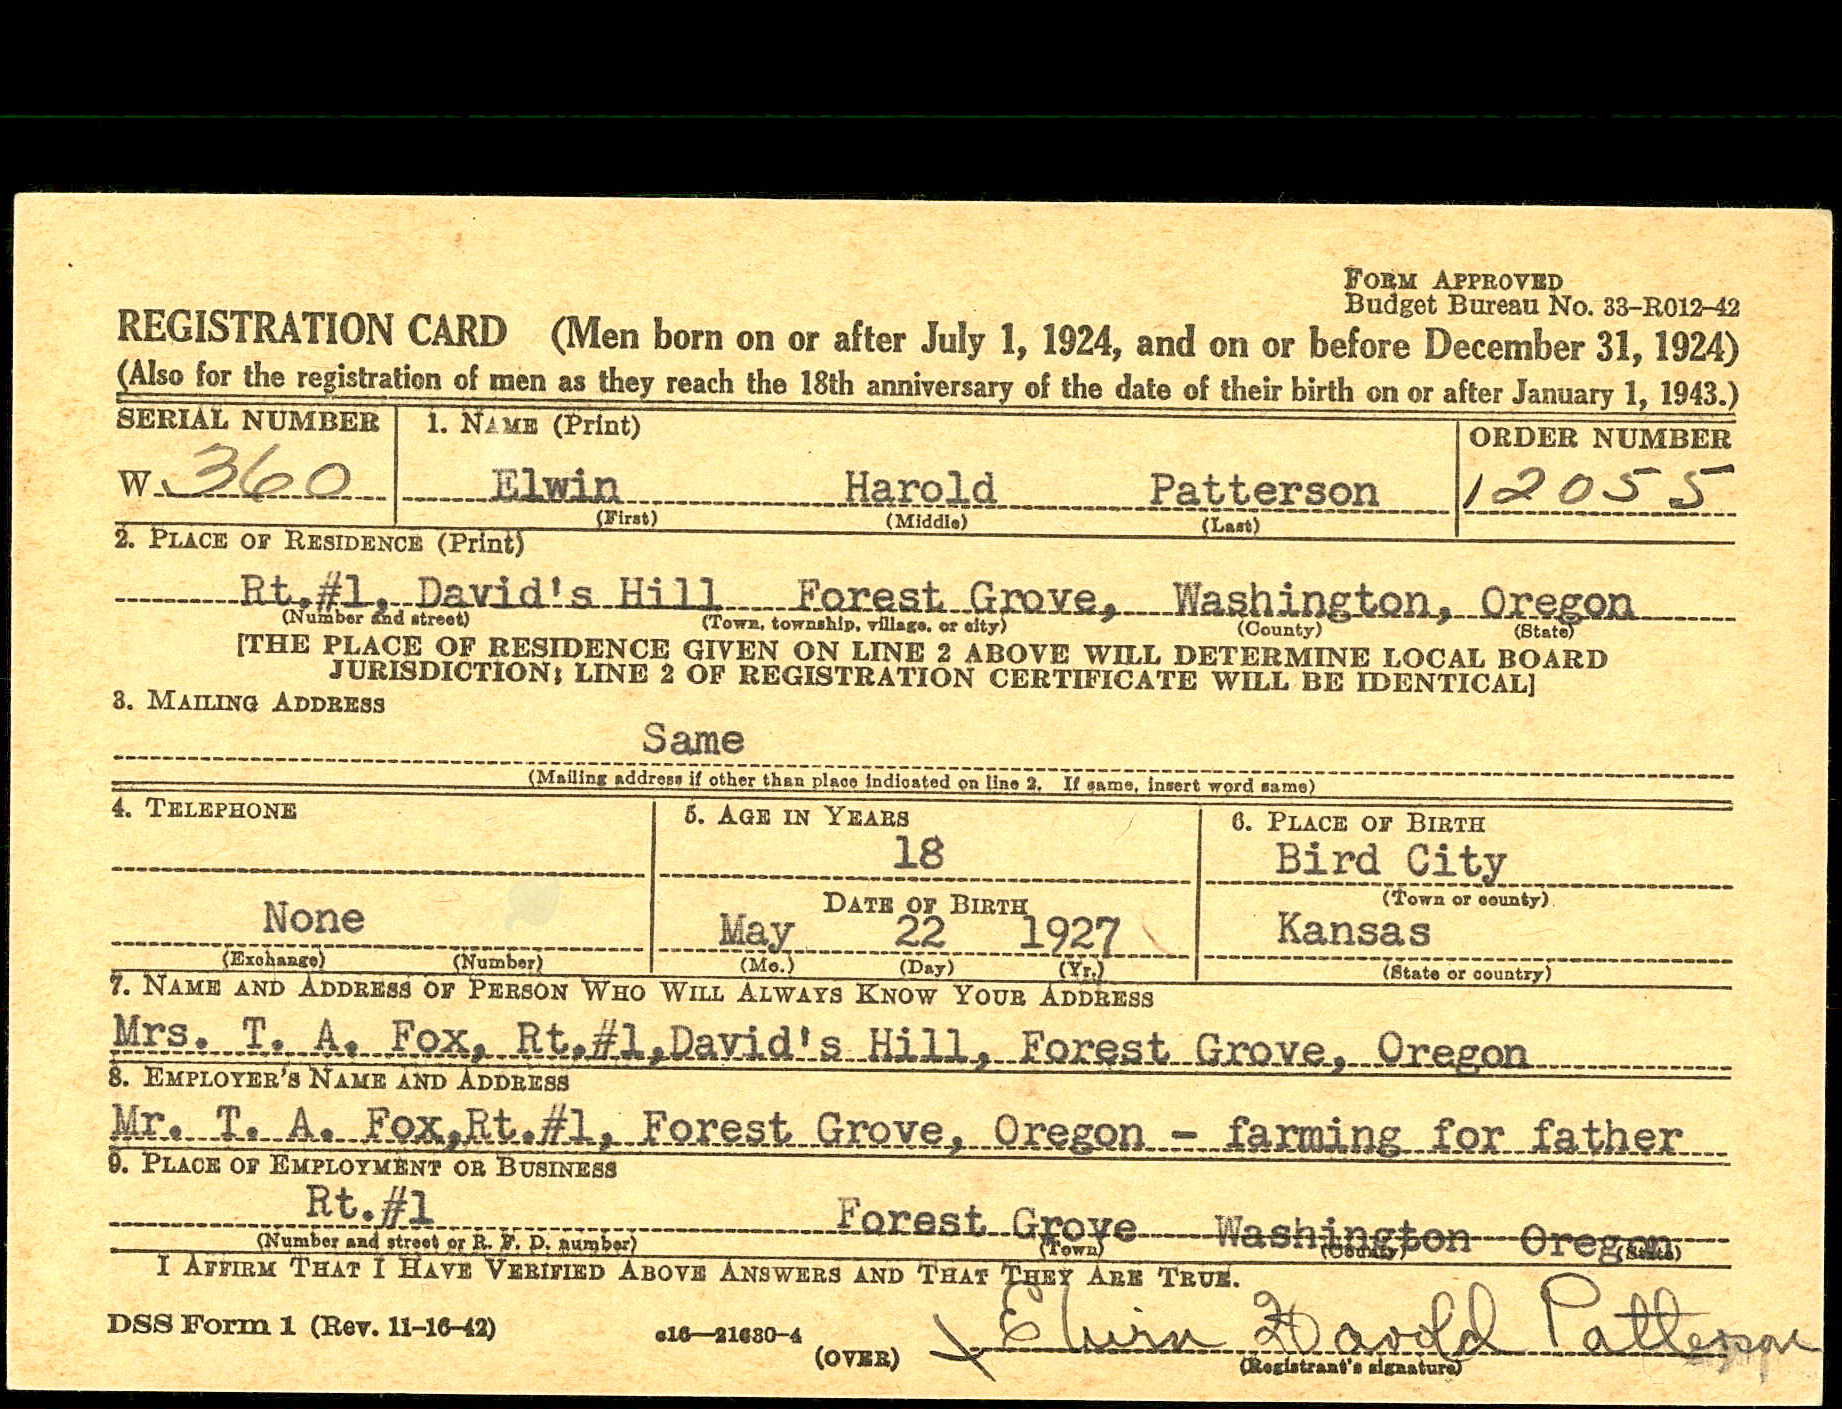 FORM APPROVED
Budget Bureau No. 33-R012-42
REGISTRATION CARD (Men born on or after July 1, 1924, and on or before December 31, 1924)
(Also for the registration of men as they reach the 18th anniversary of the date of their birth on or after January 1, 1943.)
SERIAL NUMBER 1. NAME (Print) ORDER NUMBER
W 360 Elwin Harold Patterson 12055
(First) (Middle) (Last)
2. PLACE OF RESIDENCE (Print)
Rt.#1, David's Hill Forest Grove, Washington, Oregon
(Number and street) (Town, township, village, or city) (County) (State)
[THE PLACE OF RESIDENCE GIVEN ON LINE 2 ABOVE WILL DETERMINE LOCAL BOARD
JURISDICTION; LINE 2 OF REGISTRATION CERTIFICATE WILL BE IDENTICAL]
3. MAILING ADDRESS
Same
(Mailing address if other than place indicated on line 2. If same, insert word same)
4. TELEPHONE 5. AGE IN YEARS 6. PLACE OF BIRTH
18 Bird City
DATE OF BIRTH (Town or county)
None May 22 1927 Kansas
(Exchange) (Number) (Mo.) (Day) (Yr.) (State or country)
7. NAME AND ADDRESS OF PERSON WHO WILL ALWAYS KNOW YOUR ADDRESS
Mrs. T. A. Fox, Rt.#1,David's Hill, Forest Grove, Oregon
8. EMPLOYER'S NAME AND ADDRESS
Mr. T. A. Fox,Rt.#1, Forest Grove, Oregon - farming for father
9. PLACE OF EMPLOYMENT OR BUSINESS
Rt.#1 Forest Grove Washington Oregon
(Number and street or R. F. D. number) (Town) (County) (State)
I AFFIRM THAT I HAVE VERIFIED ABOVE ANSWERS AND THAT THEY ARE TRUE.
DSS Form 1 (Rev. 11-16-42) c16—21630-4 (OVER) X Elwin Harold Patterson
(Registrant's signature)